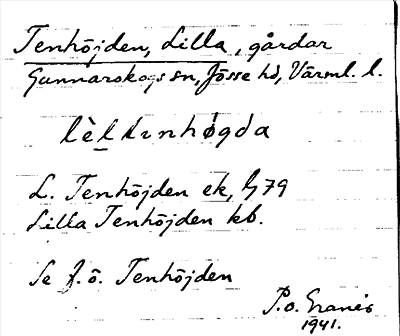 Tenhöjden, Lilla, gårdar
Gunnarskogs sn, Jösse hd, Värml. l.
L. Tenhöjden ek, G79
Lilla Tenhöjden kb.
Se f. ö. Tenhöjden
P.O. Granér
1941.